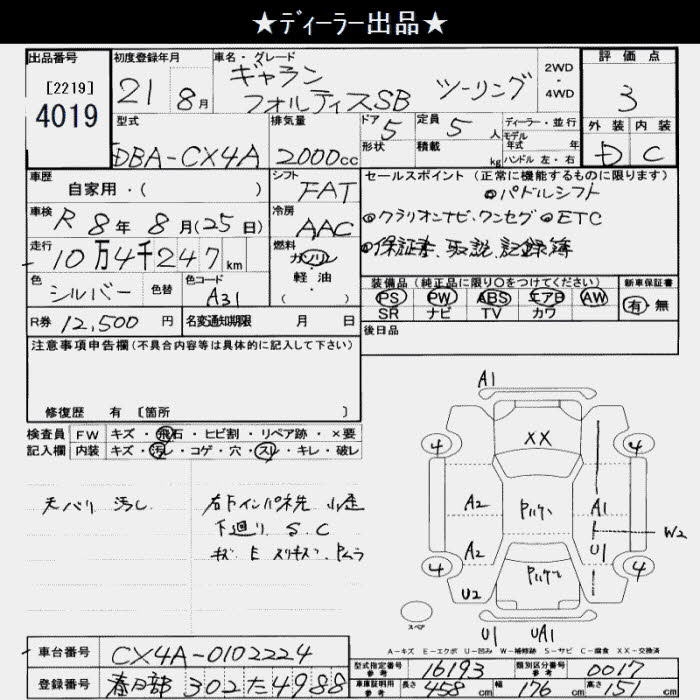 ★ディーラー出品★
出品番号
[2219]
4019
初度登録年月
21 8月
車名・グレード
ギャラン
フォルティスSB ツーリング
2WD
・
4WD
評価点
3
外装 内装
D C
型式
DBA-CX4A
排気量
2000cc
ドア 5
形状
定員 5 人
積載 kg
ディーラー・並行
モデル
年式 年
ハンドル 左・右
車歴
自家用・( )
シフト
FAT
車検
R 8年 8月(25日)
冷房
AAC
走行
10万4千247km
燃料
ガソリン
・
軽油
・
( )
色
シルバー
色替
色コード
A31
R券 12,500 円
名変通知期限 月 日
セールスポイント (正常に機能するものに限ります)
◎パドルシフト
◎クラリオンナビ、ワンセグ ◎ETC
◎保証書、取説、記録簿
装備品 (純正品に限り○をつけてください)
PS PW ABS エアB AW
SR ナビ TV カワ
新車保証書
有・無
後日品
注意事項申告欄(不具合内容等は具体的に記入して下さい)
修復歴 有 〔箇所 〕
検査員 FW キズ・飛石・ヒビ割・リペア跡・×要
記入欄 内装 キズ・汚レ・コゲ・穴・スレ・キレ・破レ
天バリ 汚し
右Fインパネ先 小歪
下廻り S.C
キズ E スリキズ、Pムラ
A1
4
XX
4
A2
Pハゲ
A1
W2
A2
U1
4
Pハゲ
4
U2
スペア
U1 UA1
A-キズ E-エクボ U-凹み W-補修跡 S-サビ C-腐食 XX-交換済
車台番号 CX4A-0102224
登録番号 春日部 302 た 4988
型式指定番号
参考
16193
類別区分番号
参考
0017
車庫証明用
参考
長さ 458 cm 幅 176 cm 高さ 151 cm